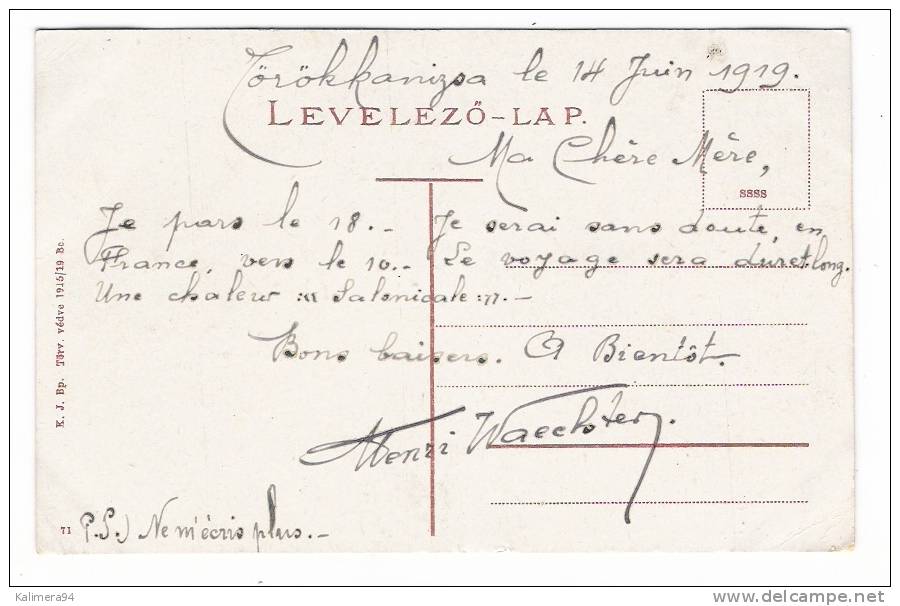 Törökkanizsa le 14 Juin 1919.
LEVELEZŐ-LAP.
Ma Chère Mère,
ssss
Je pars le 18.- Je serai sans doute, en
France, vers le 10.- Le voyage sera dur et long.
Une chaleur :" Salonicale:".-
Bons baisers. A Bientôt.
Henri Waechter.
P.S.) Ne m'écris plus.-
71
K. J. Bp. Törv. védve 1916/19 Bc.
Kalimera94
www.delcampe.net